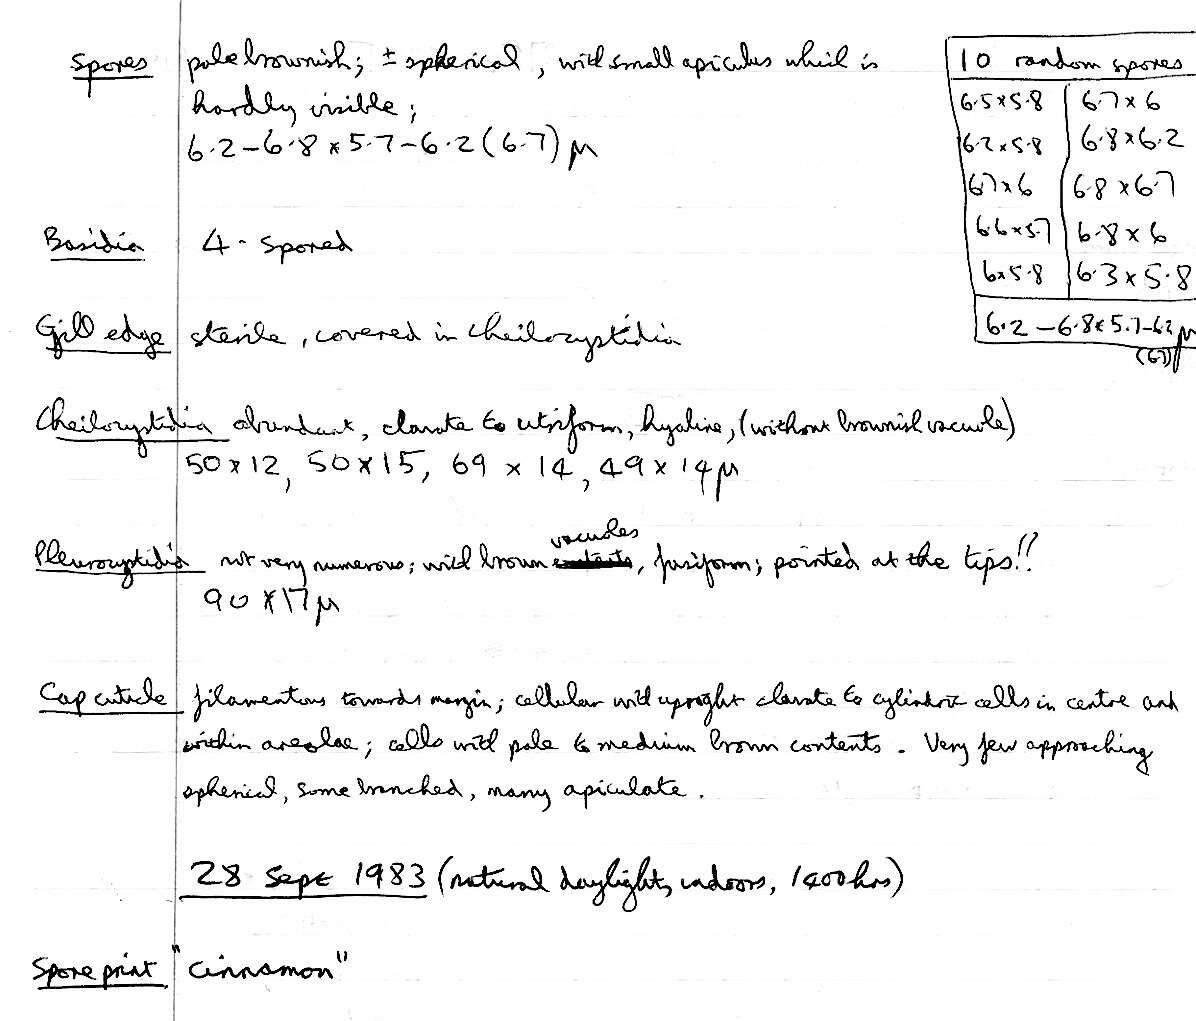 Spores pale brownish; ± spherical, with small apiculus which is
hardly visible;
6.2–6.8 × 5.7–6.2 (6.7) µ
10 random spores
6.5×5.8 6.7×6
6.2×5.8 6.8×6.2
6.7×6 6.8×6.7
6.6×5.7 6.8×6
6×5.8 6.3×5.8
6.2–6.8×5.7–6.2 µ
(6.7)
Basidia 4-spored
Gill edge sterile, covered in cheilocystidia
Cheilocystidia abundant, clavate to utriform, hyaline, (without brownish vacuole)
50×12, 50×15, 69×14, 49×14µ
vacuoles
Pleurocystidia not very numerous; with brown contents, fusiform; pointed at the tips!!
90×17µ
Cap cuticle filamentous towards margin; cellular with upright clavate to cylindric cells in centre and
within areolae; cells with pale to medium brown contents. Very few approaching
spherical, some branched, many apiculate.
28 Sept 1983 (natural daylight, indoors, 1400hrs)
Spore print "cinnamon"